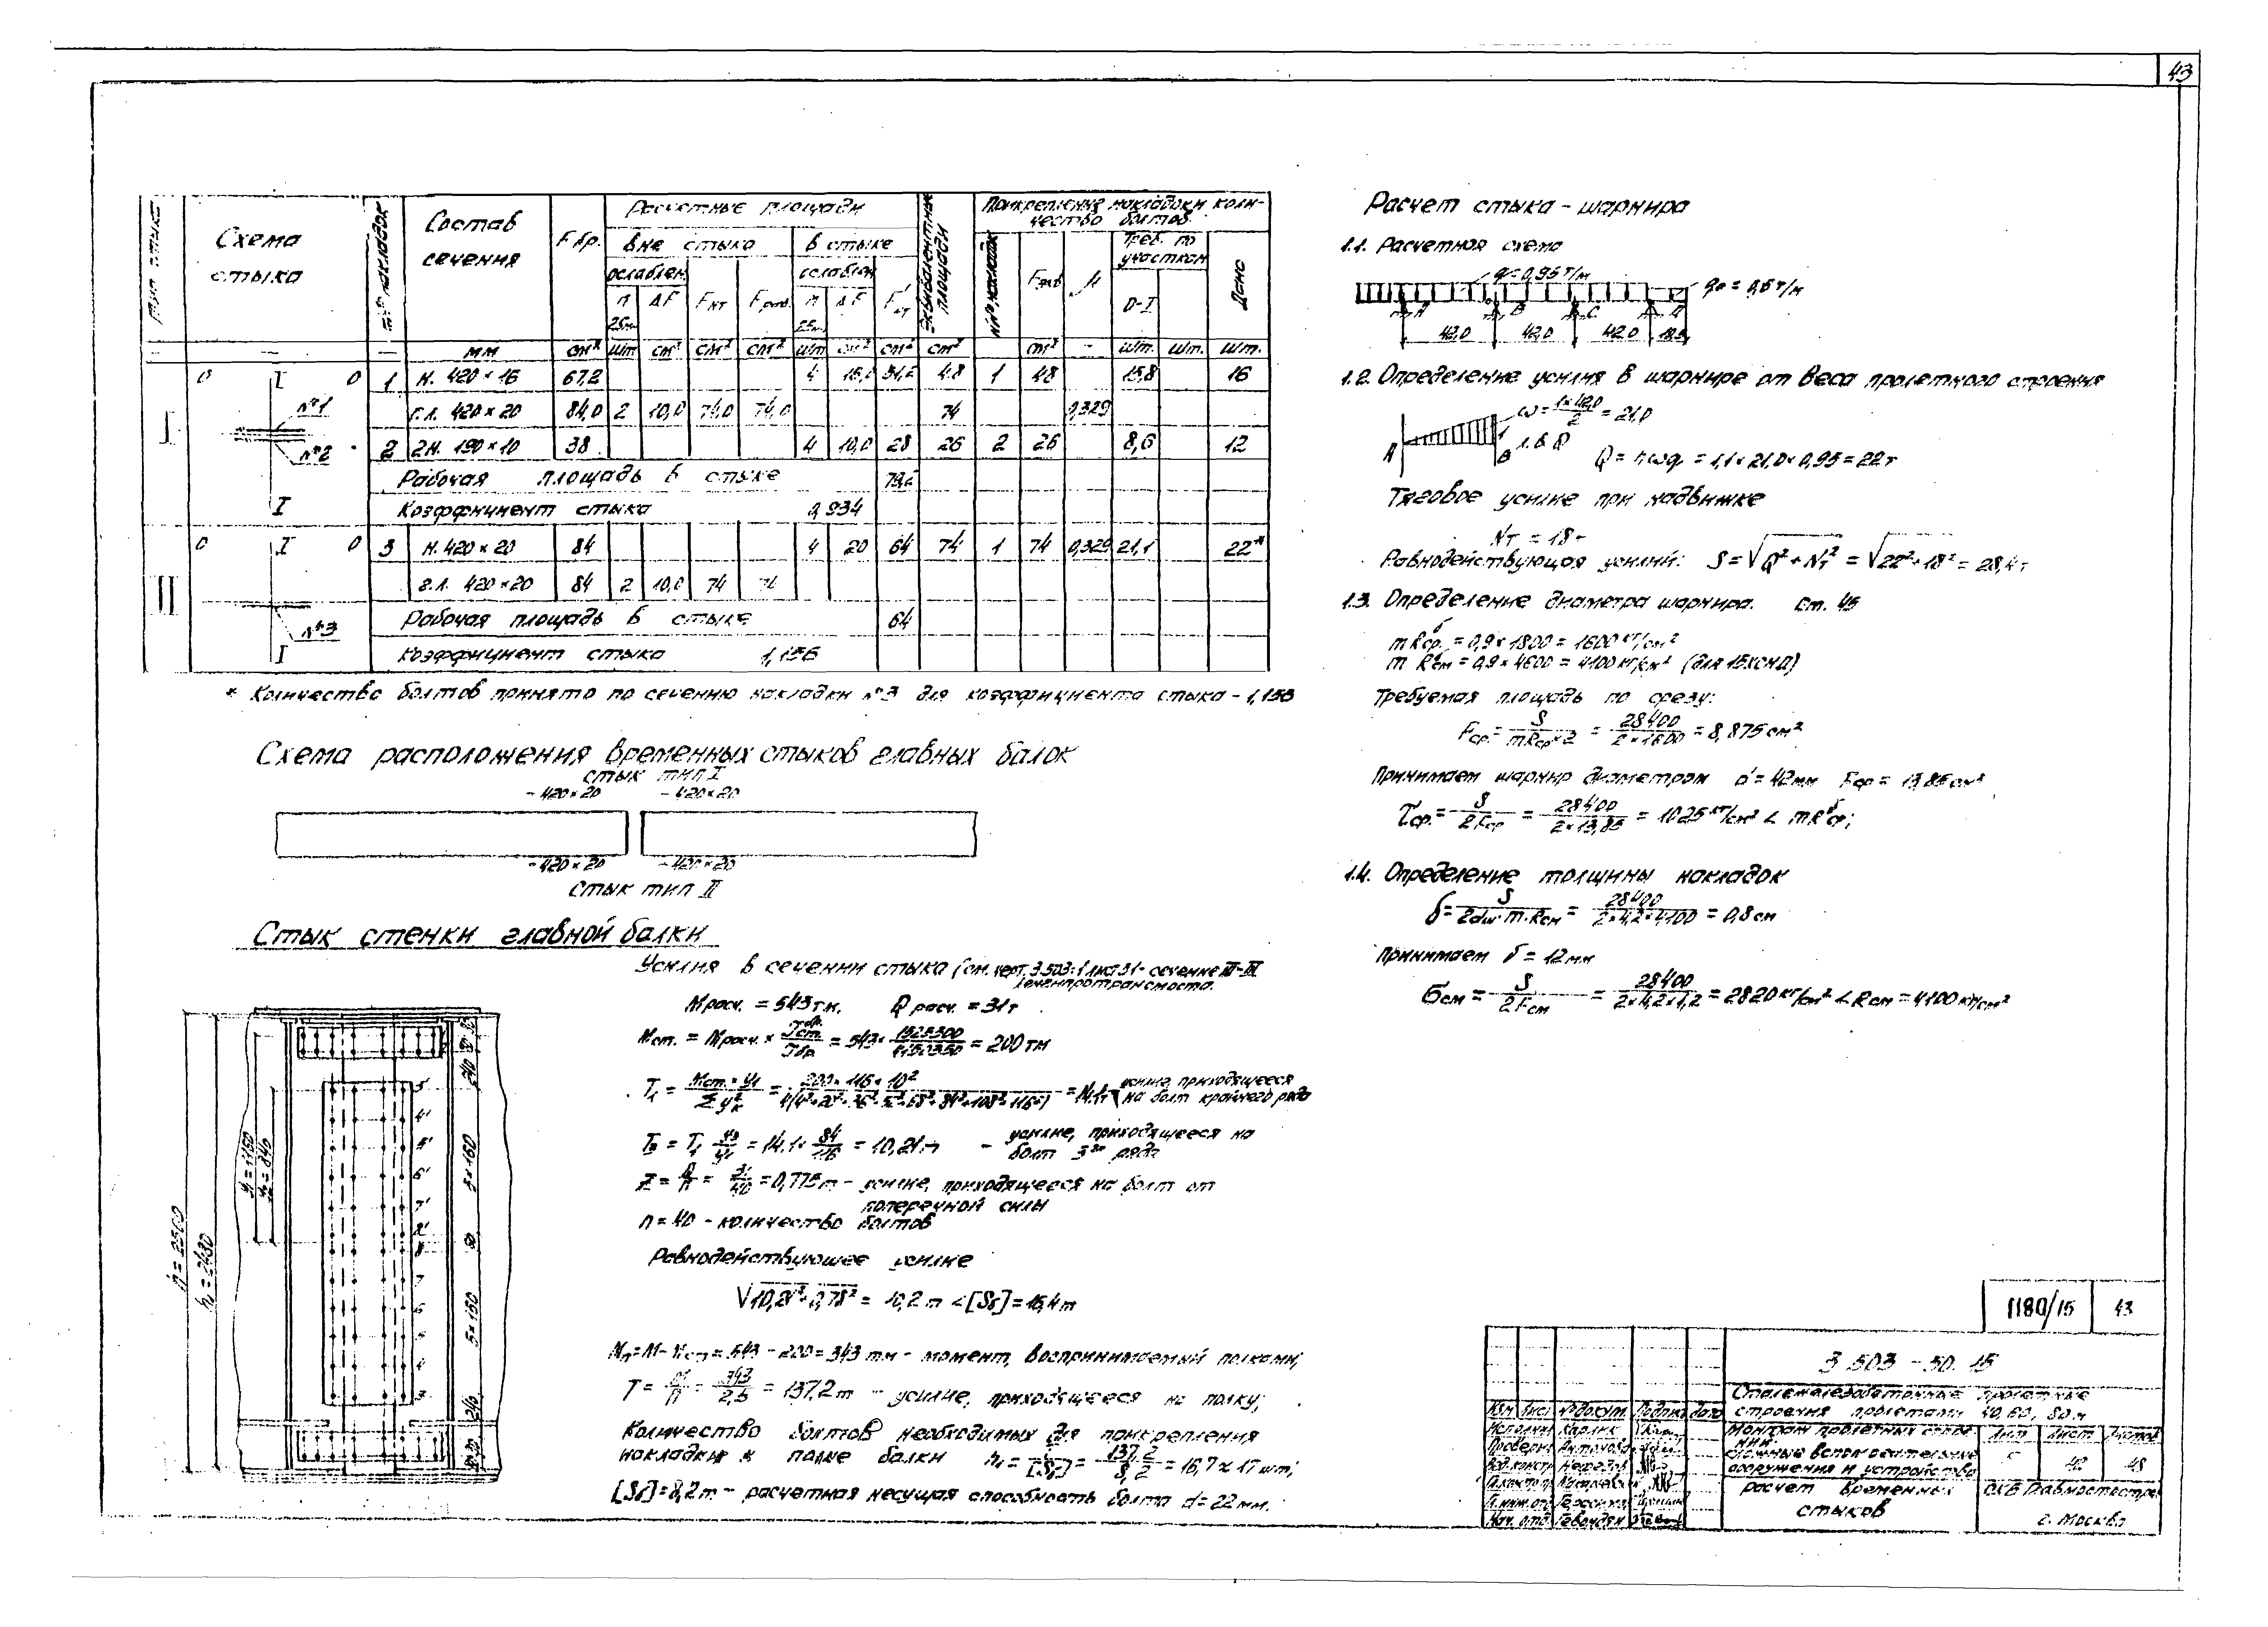 43
Тип стыка
Схема стыка
№№ накладок
Состав сечения
F бр.
Расчетные площади
вне стыка
в стыке
ослаблен.
ослаблен.
n ΔF Fнт
n ΔF F'нт
Эквивалентные площади
Прикрепление накладки количество болтов
№№ накладок
μ
Треб. по участкам
0-I
Дано
мм см² шт см² см² см² шт см² см² см² см² — шт. шт. шт.
I
0 I 0
№1
№2
I
1 Н. 420×16 67,2 4 48 1 48 15,8 16
Г.Л. 420×20 84,0 2 10,0 74,0 74,0 74 0,329
2 2Н. 190×10 38 4 10,0 28 26 2 26 8,6 12
Рабочая площадь в стыке
Коэффициент стыка 0,934
II
0 I 0
№3
I
3 Н. 420×20 84 4 20 64 74 1 74 0,329 21,1 22*
г.л. 420×20 84 2 10,0 74 74
Рабочая площадь в стыке 64
Коэффициент стыка 1,156
* Количество болтов принято по сечению накладки №3 для коэффициента стыка - 1,156
Схема расположения временных стыков главных балок
стык тип I
- 420×20 - 420×20
- 420×20 - 420×20
Стык тип II
Стык стенки главной балки
Усилия в сечении стыка (см. черт. 3.503-1 лист 31- сечение III-III
Ленгипротрансмоста.
М расч. = 543 тм. Q расч. = 31т
Мст. = Мрасч. × Jст. бр. / Jбр = 543× 1525300 / 4150350 = 200 тм
T₁ = Мст.×y₁ / Σy²к = 200×116×10² / 4(4²+20²+36²+52²+68²+84²+108²+116²) = 14,1т усилие, приходящееся на болт крайнего ряда
T₃ = T₁ y₃/y₁ = 14,1× 84/116 = 10,21т - усилие, приходящееся на болт 3го ряда
Z = Q/n = 31/40 = 0,775т - усилие, приходящееся на болт от
поперечной силы
n = 40 - количество болтов
Равнодействующее усилие
√10,21²+0,78² = 10,2 т < [Sб] = 16,4 т
Мп = М - Мст = 543 - 200 = 343 тм - момент, воспринимаемый полками;
T = М/h = 343/2,5 = 137,2 т - усилие, приходящееся на полку;
Количество болтов необходимых для прикрепления
накладки к полке балки n₁ = T/[Sб] = 137,2/8,2 = 16,7 ≈ 17 шт;
[Sб] = 8,2 т - расчетная несущая способность болта d = 22 мм.
h = 2500
h₁ = 2430
y₁ = 1160
y₃ = 840
240
5×160
80
5×160
245
Расчет стыка - шарнира
1.1. Расчетная схема
q = 0,95 т/м
qа = 0,6 т/м
A B C
42,0 42,0 42,0
1.2. Определение усилия в шарнире от веса пролетного строения
ω = 1×42,0 / 2 = 21,0
A 1 В
Л.В. Q
Q = nωq = 1,1×21,0×0,95 = 22 т
Тяговое усилие при надвижке
Nт = 18 т
Равнодействующая усилий: S = √Q²+Nт² = √22²+18² = 28,4 т
1.3. Определение диаметра шарнира. Ст. 45
mRбср. = 0,9×1800 = 1600 кг/см²
m Rбсм = 0,9×4600 = 4100 кг/см² (для 15ХСНД)
Требуемая площадь по срезу:
Fср. = S / mRср×2 = 28400 / 2×1600 = 8,875 см²
Принимаем шарнир диаметром d = 42 мм Fср = 13,85 см²
τср. = S / 2Fср = 28400 / 2×13,85 = 1025 кг/см² < mRбср;
1.4. Определение толщины накладок
δ = S / 2dш·m·Rсм = 28400 / 2×4,2×4100 = 0,8 см
Принимаем δ = 12 мм
σсм = S / 2Fсм = 28400 / 2×4,2×1,2 = 2820 кг/см² < Rсм = 4100 кг/см²
1180/15 43
3.503 - 50. 15
Сталежелезобетонные пролетные
строения пролетами 40, 60, 80 м
Изм Лист № докум. Подпись Дата
Исполнил Карлик
Проверил Антонова
Вед.констр Нефедов
Нач. отд. Гевондян
Монтаж пролетных строений.
Сложные вспомогательные
сооружения и устройства
расчет временных
стыков
Лит Лист Листов
С 42 48
СКБ Главмостострой
г. Москва